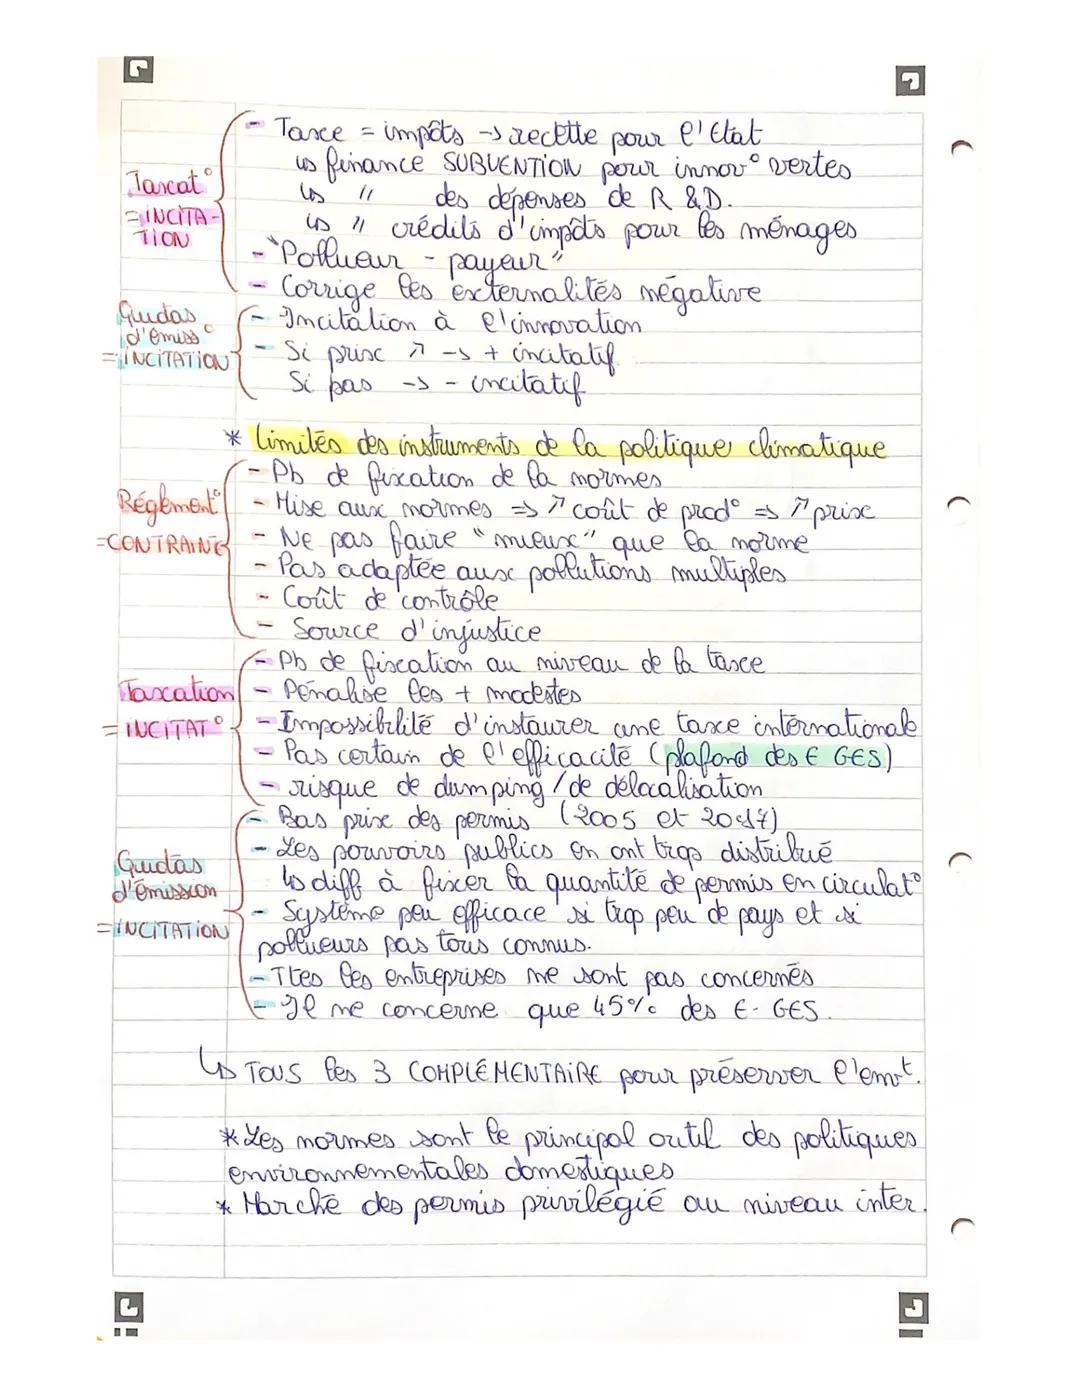 - Taxe = impôts -> recette pour l'Etat
↳ finance SUBVENTION pour innov° vertes
Taxcat°
↳ " des dépenses de R & D.
= INCITA-
TION
↳ " crédits d'impôts pour les ménages
- "Pollueur - payeur"
- Corrige les externalités négative
Quotas
d'émiss°
= INCITATION
- Incitation à l'innovation
- Si prix ↗ -> + incitatif
Si bas -> - incitatif
* Limites des instruments de la politique climatique
- Pb de fixation de la normes
Réglement°
- Mise aux normes => ↗ coût de prod° => ↗ prix
=CONTRAINTE
- Ne pas faire "mieux" que la norme
- Pas adaptée aux pollutions multiples
- Coût de contrôle
- Source d'injustice
- Pb de fixation au niveau de la taxe
Taxcation
- Pénalise les + modestes
= INCITAT°
- Impossibilité d'instaurer une taxe internationale
- Pas certain de l'efficacité (plafond des E GES)
- risque de dumping / de délocalisation
- Bas prix des permis (2005 et 2017)
Quotas
d'émission
- Les pouvoirs publics en ont trop distribué
↳ diff à fixer la quantité de permis en circulat°
= INCITATION
- Système peu efficace si trop peu de pays et si
pollueurs pas tous connus.
- Ttes les entreprises ne sont pas concernés
- Il ne concerne que 45% des E- GES.
↳ TOUS les 3 COMPLÉMENTAIRE pour préserver l'emvt.
* Les normes sont le principal outil des politiques
environnementales domestiques
* Marché des permis privilégié au niveau inter.